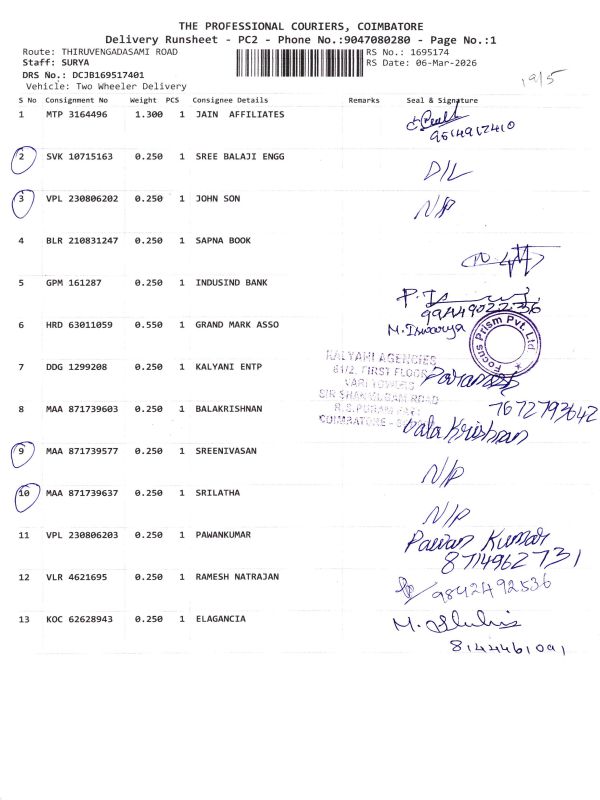 THE PROFESSIONAL COURIERS, COIMBATORE
Delivery Runsheet - PC2 - Phone No.:9047080280 - Page No.:1
Route: THIRUVENGADASAMI ROAD RS No.: 1695174
Staff: SURYA RS Date: 06-Mar-2026
DRS No.: DCJB169517401
19/5
Vehicle: Two Wheeler Delivery
S No Consignment No Weight PCS Consignee Details Remarks Seal & Signature
1 MTP 3164496 1.300 1 JAIN AFFILIATES
9514917410
2 SVK 10715163 0.250 1 SREE BALAJI ENGG D/L
3 VPL 230806202 0.250 1 JOHN SON N/P
4 BLR 210831247 0.250 1 SAPNA BOOK
5 GPM 161287 0.250 1 INDUSIND BANK
6 HRD 63011059 0.550 1 GRAND MARK ASSO M. Iswarya
Focus Prism Pvt. Ltd
7 DDG 1299208 0.250 1 KALYANI ENTP
KALYANI AGENCIES
61/2, FIRST FLOOR
VARI TOWERS
SIR SHANMUGAM ROAD
R.S.PURAM
COIMBATORE -
8 MAA 871739603 0.250 1 BALAKRISHNAN
7672793642
Bala Krishnan
9 MAA 871739577 0.250 1 SREENIVASAN N/P
10 MAA 871739637 0.250 1 SRILATHA N/P
11 VPL 230806203 0.250 1 PAWANKUMAR Pawan Kumar
8714962731
12 VLR 4621695 0.250 1 RAMESH NATRAJAN 9842492536
13 KOC 62628943 0.250 1 ELAGANCIA
8144461091